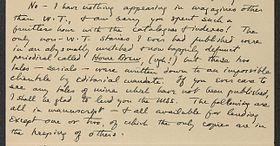 No – I have nothing appearing in magazines other
than W.T., & am sorry you spent such a
fruitless hour with the catalogues & indices! The
only non-W.T. stories I ever had published were
in an abysmally wretched & now happily defunct
periodical called Home Brew (ugh!) but these two
tales – serials – were written down to an impossible
clientele by editorial mandate. If you ever care to
see any tales of mine which have not been published,
I shall be glad to lend you the MSS. The following are
all in manuscript – & all available for lending
except one or two, of which the only copies are in
the keeping of others: